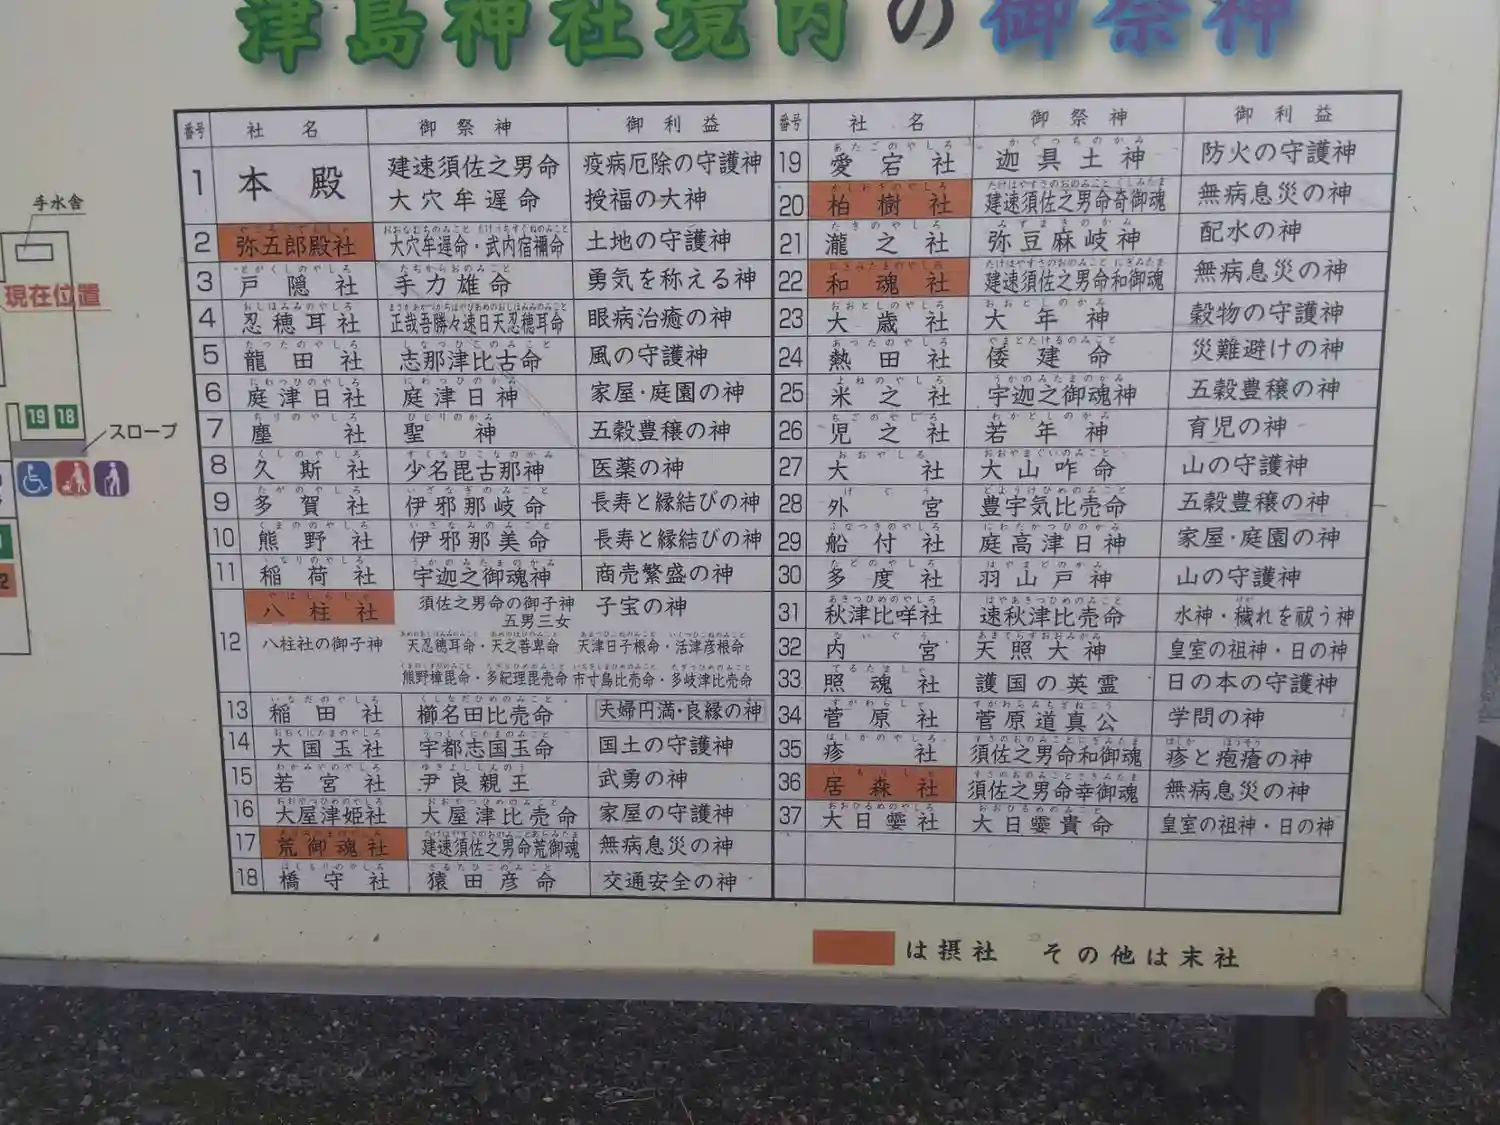 津島神社境内の御祭神
番号 社名 御祭神 御利益
1 本殿 建速須佐之男命 疫病厄除の守護神
大穴牟遅命 授福の大神
2 弥五郎殿社 大穴牟遅命・武内宿禰命 土地の守護神
3 戸隠社 手力雄命 勇気を称える神
4 忍穂耳社 正哉吾勝々速日天忍穂耳命 眼病治癒の神
5 龍田社 志那津比古命 風の守護神
6 庭津日社 庭津日神 家屋・庭園の神
7 塵社 聖神 五穀豊穣の神
8 久斯社 少名毘古那神 医薬の神
9 多賀社 伊邪那岐命 長寿と縁結びの神
10 熊野社 伊邪那美命 長寿と縁結びの神
11 稲荷社 宇迦之御魂神 商売繁盛の神
12 八柱社 須佐之男命の御子神 五男三女 子宝の神
八柱社の御子神 天忍穂耳命・天之菩卑命 天津日子根命・活津彦根命
熊野樟毘命・多紀理毘売命 市寸島比売命・多岐津比売命
13 稲田社 櫛名田比売命 夫婦円満・良縁の神
14 大国玉社 宇都志国玉命 国土の守護神
15 若宮社 尹良親王 武勇の神
16 大屋津姫社 大屋津比売命 家屋の守護神
17 荒御魂社 建速須佐之男命荒御魂 無病息災の神
18 橋守社 猿田彦命 交通安全の神
番号 社名 御祭神 御利益
19 愛宕社 迦具土神 防火の守護神
20 柏樹社 建速須佐之男命奇御魂 無病息災の神
21 瀧之社 弥豆麻岐神 配水の神
22 和魂社 建速須佐之男命和御魂 無病息災の神
23 大歳社 大年神 穀物の守護神
24 熱田社 倭建命 災難避けの神
25 米之社 宇迦之御魂神 五穀豊穣の神
26 児之社 若年神 育児の神
27 大社 大山咋命 山の守護神
28 外宮 豊宇気比売命 五穀豊穣の神
29 船付社 庭高津日神 家屋・庭園の神
30 多度社 羽山戸神 山の守護神
31 秋津比咩社 速秋津比売命 水神・穢れを祓う神
32 内宮 天照大神 皇室の祖神・日の神
33 照魂社 護国の英霊 日の本の守護神
34 菅原社 菅原道真公 学問の神
35 疹社 須佐之男命和御魂 疹と疱瘡の神
36 居森社 須佐之男命幸御魂 無病息災の神
37 大日孁社 大日孁貴命 皇室の祖神・日の神
は摂社 その他は末社
手水舎
現在位置
19 18
スロープ